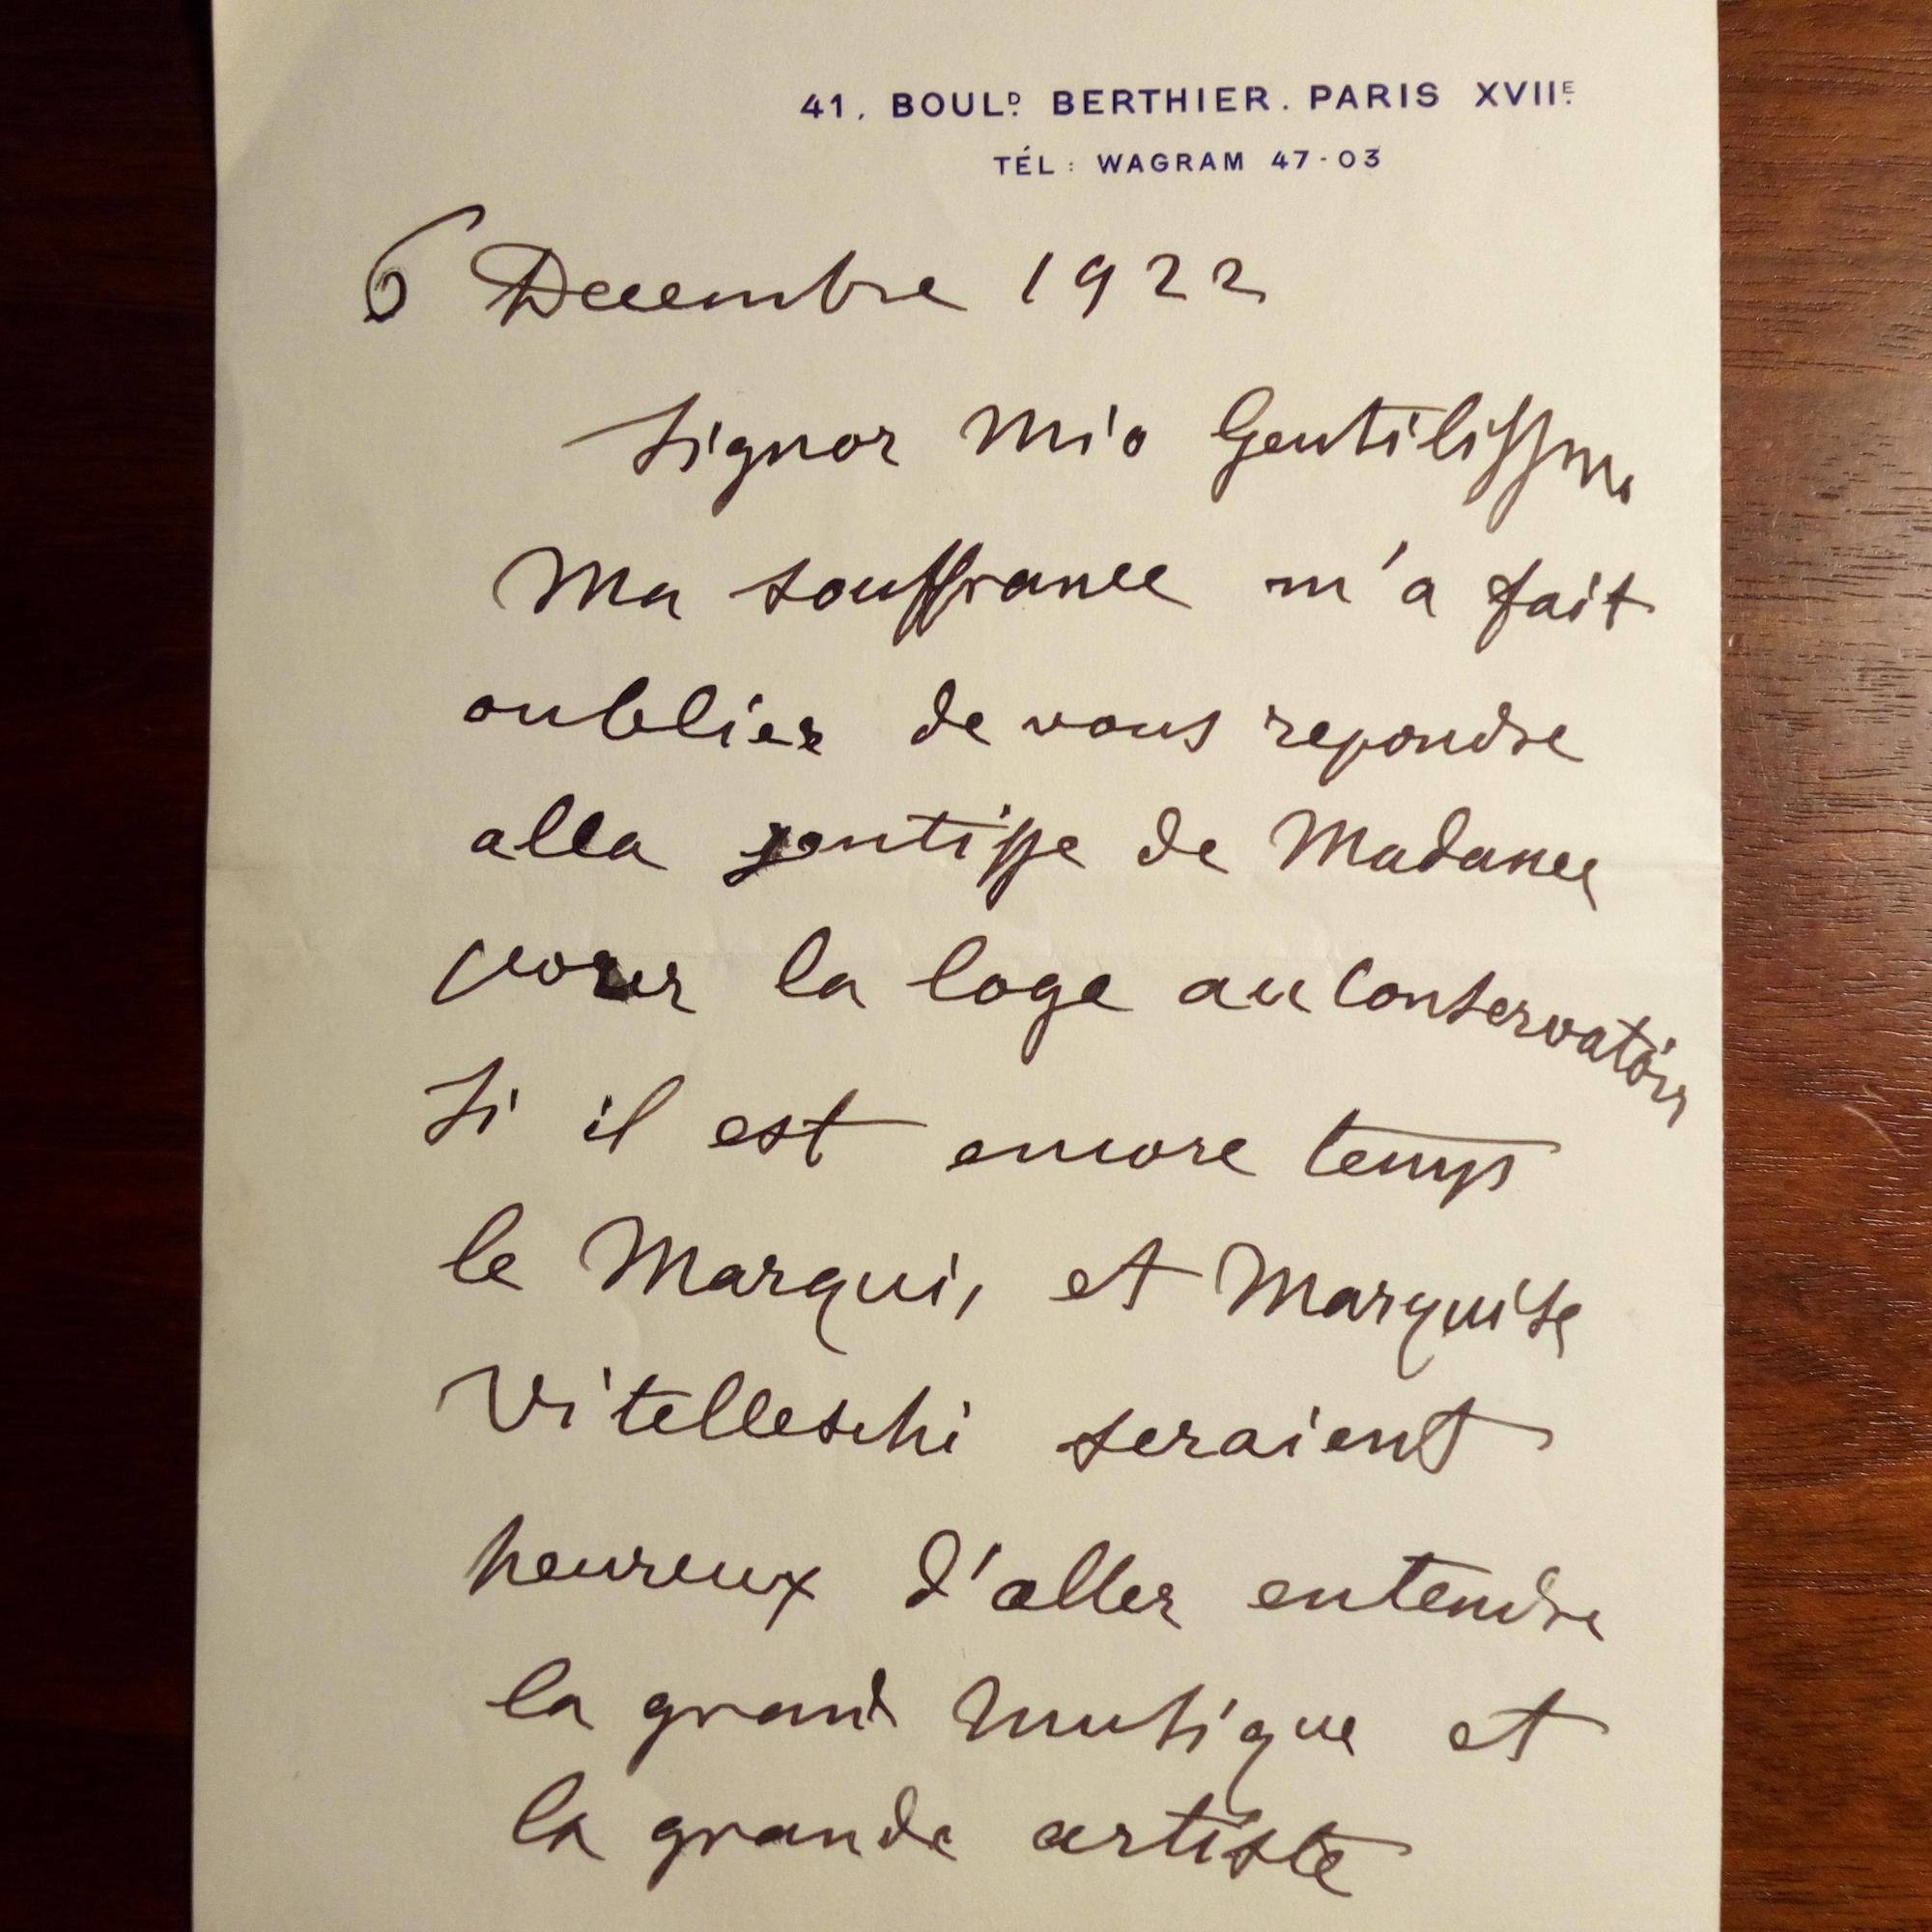 41, BOULᴰ BERTHIER. PARIS XVIIᴱ.
TÉL : WAGRAM 47-03
6 Decembre 1922
Signor Mio Gentilissimo
Ma souffrance m'a fait
oublier de vous repondre
alla gentisse de Madame
pour la loge au Conservatoir
Si il est encore temps
le Marquis et Marquise
Vitelleschi seraient
heureux d'aller entendre
la grand musique et
la grande artiste